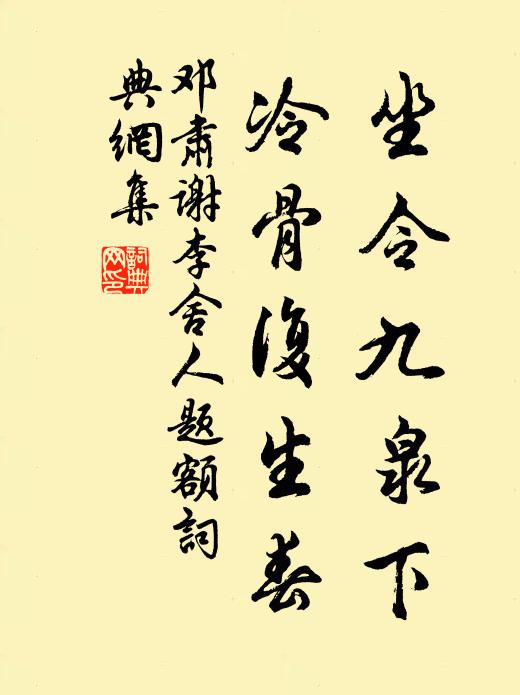 坐令九泉下
冷骨復生春
邓肅谢李舍人题額詞
典網集
詞典网印